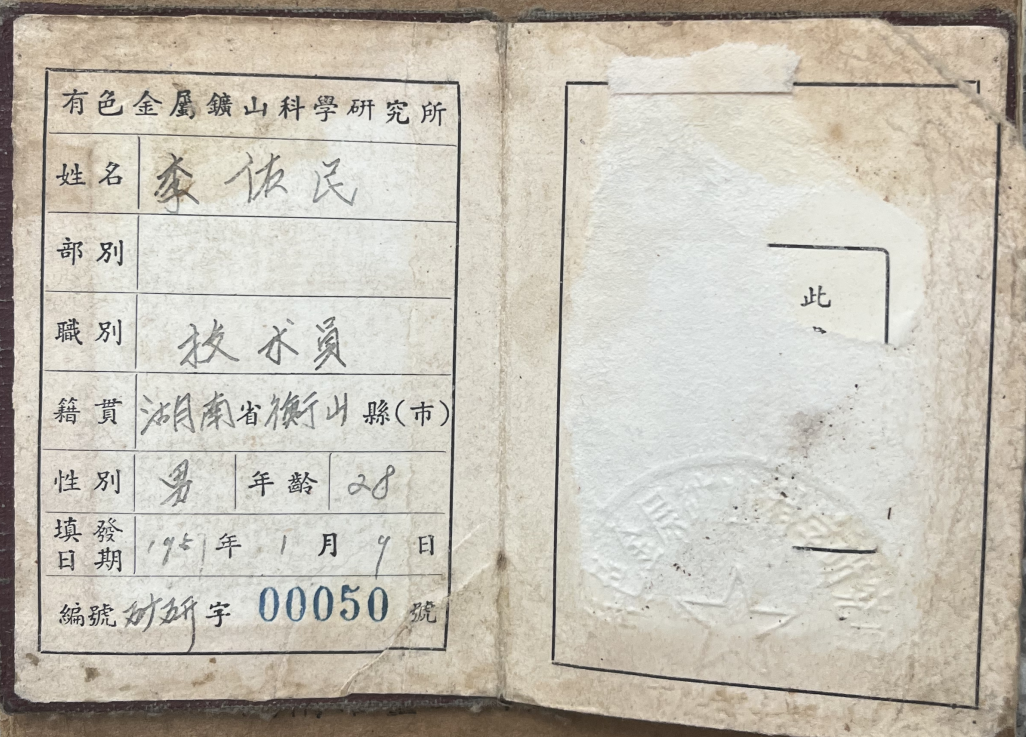 有色金屬鑛山科學研究所
姓名 李佑民
部別
職別 技术員
籍貫 湖南省衡山縣(市)
性別 男 年齡 28
填發日期 1951年1月9日
編號 矿研字 00050 號
此